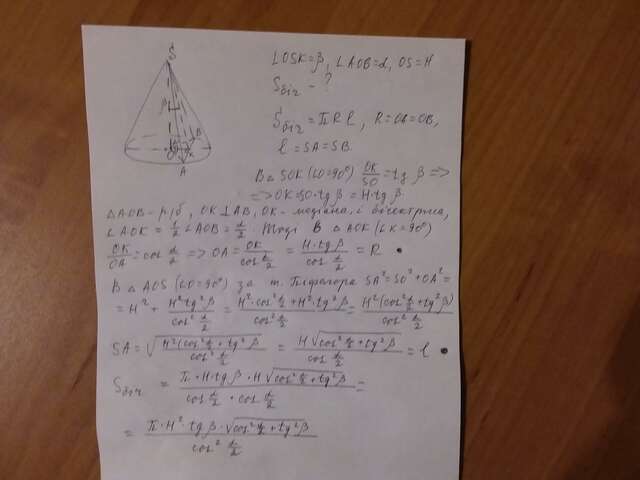 S
β
O
K
B
A
∠OSK=β, ∠AOB=α, OS=H
Sбіч - ?
Sбіч = πRl, R=OA=OB,
l=SA=SB.
В △ SOK (∠O=90°) OK/SO = tg β =>
=> OK=SO·tg β = H·tg β.
△AOB - р/б, OK⊥AB, OK - медіана, і бісектриса,
∠AOK = 1/2 ∠AOB = α/2. Тоді В △ AOK (∠K=90°)
OK/OA = cos α/2 => OA = OK/cos α/2 = H·tg β/cos α/2 = R
В △ AOS (∠O=90°) за т. Піфагора SA²=SO²+OA²=
= H² + H²tg²β/cos² α/2 = H²·cos² α/2 + H²·tg²β/cos² α/2 = H²(cos² α/2 + tg²β)/cos² α/2
SA = √(H²(cos² α/2 + tg²β)/cos² α/2) = H√(cos² α/2 + tg²β)/cos α/2 = l
Sбіч = π·H·tg β·H√(cos² α/2 + tg²β)/cos α/2 · cos α/2 =
= π·H²·tg β·√(cos² α/2 + tg²β)/cos² α/2